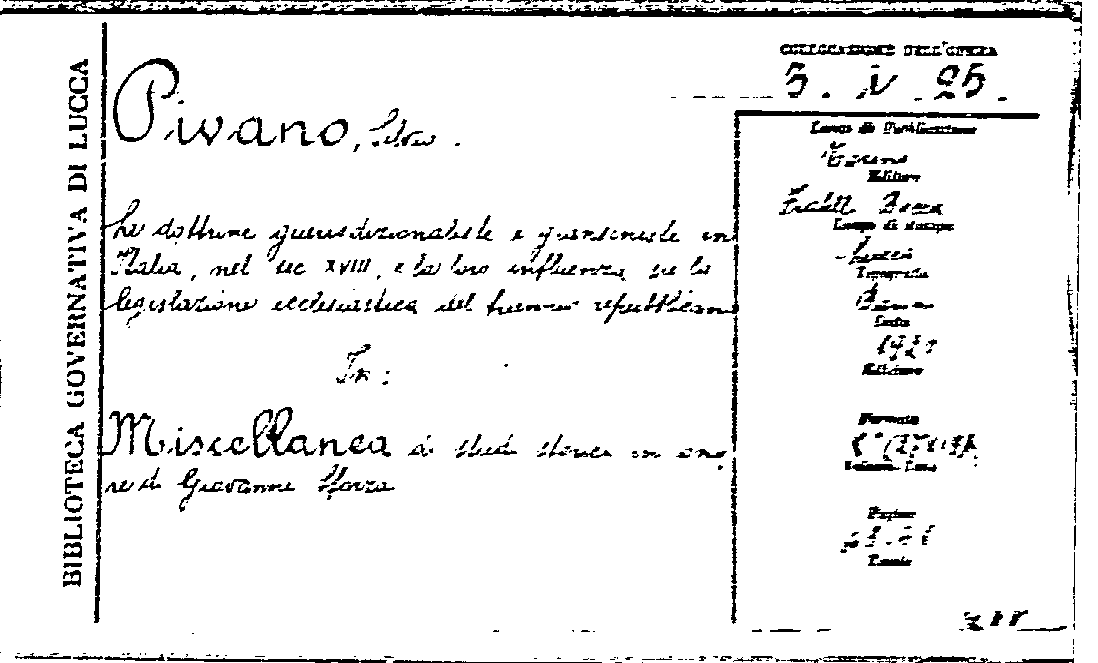 BIBLIOTECA GOVERNATIVA DI LUCCA
Pivano, Silvio.
Le dottrine giurisdizionaliste e gianseniste in
Italia, nel sec XVIII, e la loro influenza su la
legislazione ecclesiastica del periodo repubblicano
In:
Miscellanea di studi storici in ono
re di Giovanni Sforza
COLLOCAZIONE DELL'OPERA
3. N. 25.
Luogo di Pubblicazione
Torino
Editore
Fratelli Bocca
Luogo di stampa
Lucca
Tipografia
Baroni
Data
1920
Edizione
Formato
8°
Pagine
Tomo